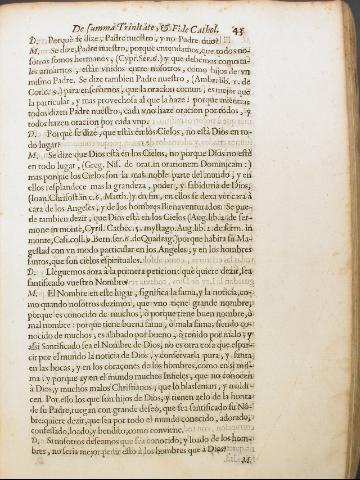 De summa Trinitate, & Fide Cathol. 43
D. Porquè se dize, Padre nuestro, y no Padre mio?
M. Se dize, Padre nuestro, porque entendamos, que todos no-
sotros somos hermanos, (Cypr. Ser. 6.) y que debemos como ta-
les amarnos, estàn vnidos entre nosotros, como hijos de vn
mismo Padre. Se dize tambien Padre nuestro, (Ambr. lib. 1. de
para enseñarnos, que la oracion comun, es mejor que
la particular, y mas provechosa al que la haze: porque mientras
todos dizen Padre nuestro, cada vno haze oracion por todos, y
todos hazen oracion por cada vno.
D. Porquè se dize, què estàs en los Cielos, no està Dios en to-
do lugar?
M. Se dize que Dios està en los Cielos, no porque Dios no estè
en todo lugar, (Greg. Nis. de orat. in orationem Dominicam:)
mas porque los Cielos son la mas noble parte del mundo, y en
ellos resplandece mas la grandeza, poder, y sabiduria de Dios,
(Ioan. Christ. in c. 6. Matth.) y en fin, en ellos se dexa vèr cara à
cara de los Angeles, y de los hombres Bienaventurados. Se pue-
de tambien dezir, que Dios està en los Cielos (Aug. lib. 2. de ser-
mone in monte, Cyril. Cathec. 5. mystago. Aug. lib. 2. de serm. in
monte, Bern. ser. 8. de Quadrag.) porque habita su Ma-
gestad con vn modo particular en los Angeles, y en los hombres
santos, que son cielos espirituales.
D. Lleguemos aora à la primera peticion: què quiere dezir, sea
santificado vuestro Nombre?
M. El Nombre en este lugar, significa la fama, y la noticia, co-
mo quando nosotros dezimos, que vno tiene grande nombre;
porque es conocido de muchos; ò porque tiene buen nombre, ò
mal nombre: porque tiene buena fama, ò mala fama, siendo co-
nocido de muchos, es alabado por bueno, ò tenido por malo; y
assi Santificado sea el Nombre de Dios, no es otra cosa que espar-
cir por el mundo la noticia de Dios, y conservarla pura, y santa
en las bocas, y en los coraçones de los hombres, como en sì mis-
ma; y porque ay en el mundo muchos Infieles, que no conocen
à Dios, y muchos malos Christianos, que lo blasfeman, y maldi-
cen. Por esso los que son hijos de Dios, y tienen zelo de la honra
de su Padre, ruegan con grande deseo, que sea santificado su Nõ-
bre: quiere dezir, que sea por todo el mundo conocido, adorado,
confessado, loado, y bendito, como conviene.
D. Si nosotros deseamos que sea conocido, y loado de los hom-
bres, no seria mejor pedir esso à los hombres que à Dios?
M.